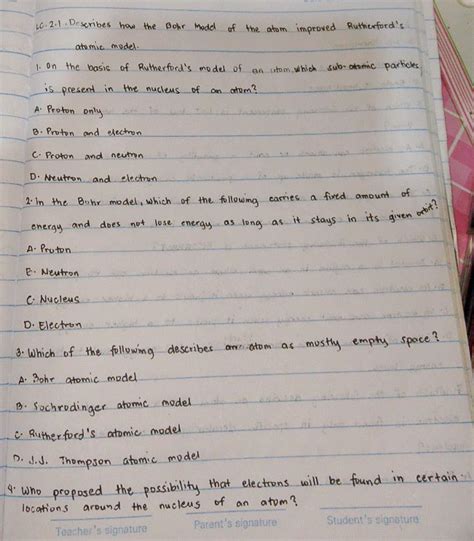 LC. 2.1. Describes how the Bohr Model of the atom improved Rutherford's
atomic model.
1. On the basis of Rutherford's model of an atom which sub-atomic particles
is present in the nucleus of an atom?
A. Proton only
B. Proton and electron
C. Proton and neutron
D. Neutron and electron
2. In the Bohr model, which of the following carries a fixed amount of
energy and does not lose energy as long as it stays in its given orbit?
A. Proton
B. Neutron
C. Nucleus
D. Electron
3. Which of the following describes an atom as mostly empty space?
A. Bohr atomic model
B. Sochrodinger atomic model
C. Rutherford's atomic model
D. J.J. Thompson atomic model
4. Who proposed the possibility that electrons will be found in certain
locations around the nucleus of an atom?
Teacher's signature Parent's signature Student's signature